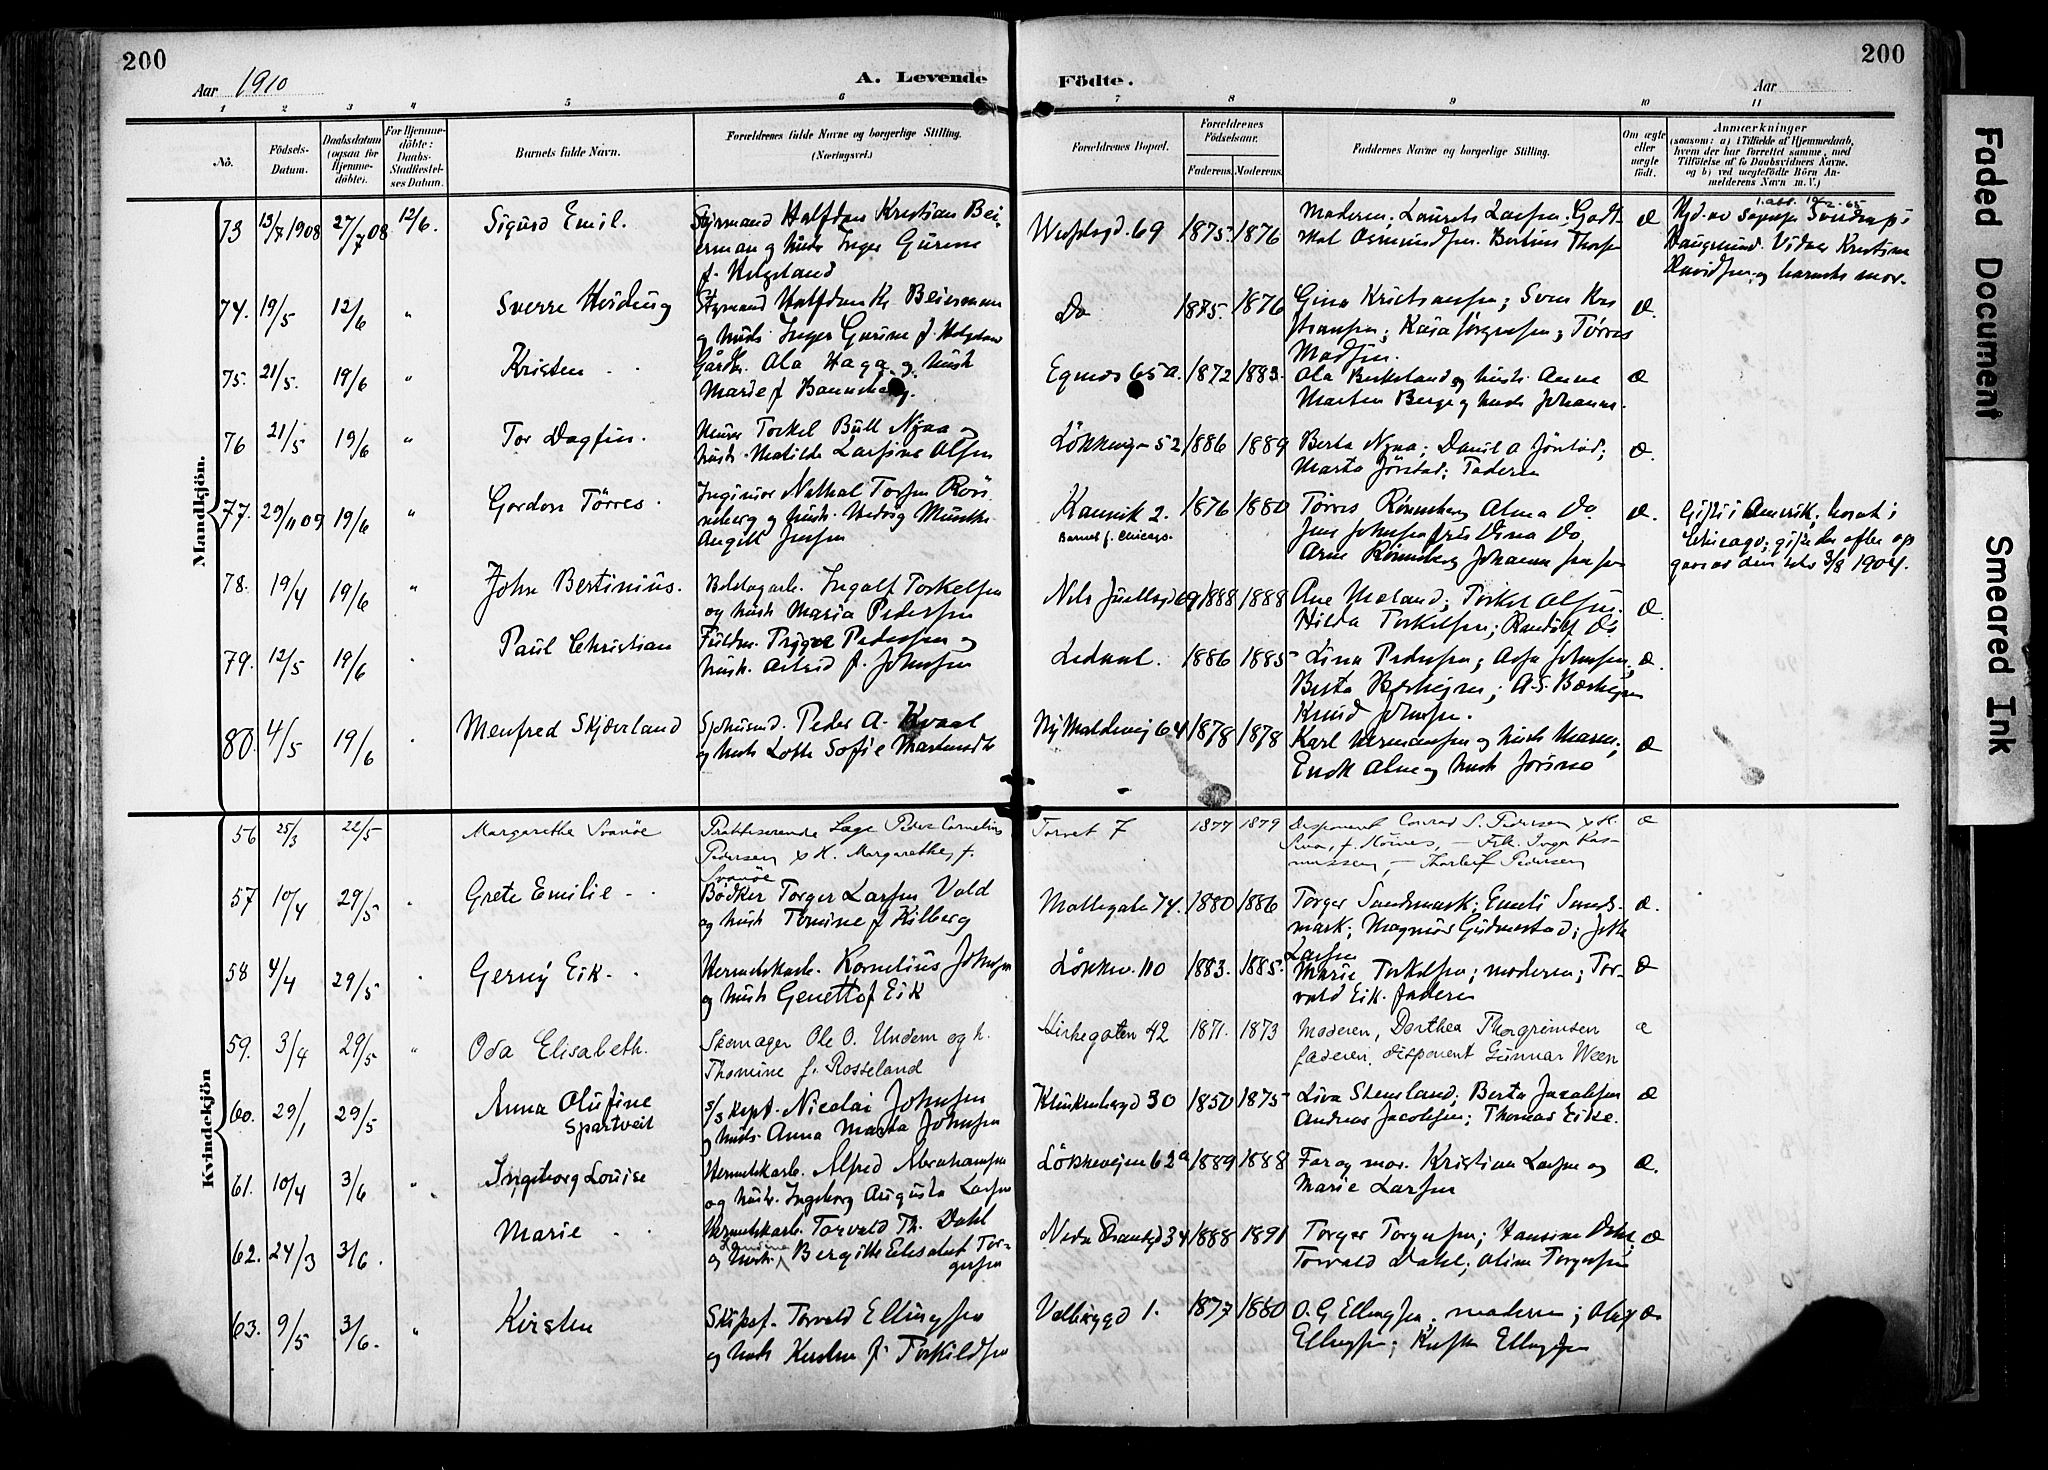 200
200
Aar 1910
A. Levende
Födte.
Aar
1 2 3 4 5 6 7 8 9 10 11
No.
Födsels-
Datum.
Daabsdatum
(ogsaa for
Hjemme-
döbte).
For Hjemme-
döbte:
Daabs-
Stadfæstel-
ses Datum.
Barnets fulde Navn.
Forældrenes fulde Navne og borgerlige Stilling.
(Næringsvei.)
Forældrenes Bopæl.
Forældrenes
Födselsaar.
Faderens. Moderens.
Faddernes Navne og borgerlige Stilling.
Om ægte
eller
uægte
födt.
Anmærkninger
(saasom: a) i Tilfælde af Hjemmedaab,
hvem der har forrettet samme, med
Tilföielse af to Daabsvidners Navne.
og b) ved uegtefödte Börn An-
melderens Navn m. V.)
Mandkjön.
73 13/7 1908 27/7 08 12/6. Sigurd Emil.
Styrmand Halfdan Kristian Bei-
erman og hust. Inger Gurine
f. Helgeland
69 1875 1876
Moderen; Laurits Larsen;
Bertine
æ
Vidner Kristine
Davidsen og barnets mor.
74. 19/5 12/6 " Sverre Heiding
Styrmand Halfdan Kr. Beierman
og hust. Inger Gurine f.
Do 1875. 1876
Gina Kristiansen; Sven Kri
stiansen; Tørres
Madsen.
æ.
75. 21/5. 19/6 " Kristen
Ola Haga og hust.
Marie f.
65a. 1872 1883.
Ola Birkeland og hust. Anna
Marten Berge og hust. Johanne.
æ
76 21/5 19/6 " Tor Dagfin.
Murer Torkel Bull Nyaa og
hust. Matilde Larsine Olsen
52 1886 1889
Berta Nyaa; Daniel A Jörstad;
Marta Jörstad; Faderen
æ.
77. 29/11 09 19/6 " Gordon Törres
Ingeniør Nathal Torsen Rön
neberg og hust. Hedvig Munthe
Jensen
Kannik 2.
Barnet f. Chicago.
1876 1880
Törres Rönneberg Alma Do.
Dina Do
Arne Rönneberg Johanna
æ.
Gift i Amerik, bosat i
Chicago; gifte der efter op
gave
1904.
78. 19/4 19/6 " John Bertinius.
Ingolf Torkelsen
og hust. Maria Pedersen
Nils Juelsgd 69 1888 1888
Ane Meland; Torkel Olsen
Hilda Torkelsen; Do
æ.
79. 12/5 19/6 Paul Christian
Fuldm. Trygve Pedersen og
hust. Astrid f. Johnsen
Ledaal. 1886 1885
Lina Pedersen; Johnsen;
Berta
Knud Johnsen.
æ.
80. 4/5 19/6 Menfred Skjæveland
Sjömand. Peder A. Kvaal
og hust. Lotte Sofie
64 1878 1878
Karl Hermansen og hust. Maren;
og hust. Jorine
æ
Kvindekjön
56 25/3 22/5 Margarethe Svanöe
Praktiserende Læge Peder Cornelius
Pedersen & H. Margarethe, f.
Svanöe
Torvet 7 1877 1879
Disponent Conrad S. Pedersen & H.
Frk. Inga Ras-
mussen, — Thorleif Pedersen
æ
57 10/4 29/5 " Grete Emilie
Bødker Torger Larsen Vold
og hust. Tomine f Kilberg
Möllegate 74. 1880 1886
Torger Sandsmark; Emili Sands
mark; Magnus Gudmestad;
Larsen
æ.
58 4/4 29/5 " Gerny Eik.
Hermetikarb. Kornelius Johnsen
og hust. Genette f Eik
Lökkev. 110 1883. 1885.
Marie Torkelsen; moderen; Tor
vald Eik. faderen
æ
59. 3/4 29/5 " Oda Elisabeth.
Skomager Ole O. Undem og h.
Thomine f. Rosseland
Kirkegaten 42 1871. 1873
Moderen, Dorthea Thorgrimsen
faderen, disponent Gunnar Ween
æ
60. 29/1 29/5 " Anna Olufine
Spartveit
S/S Kapt. Nicolai Johnsen
og hust. Anna Marta Johnsen
Klinkenbergd 30 1850 1875
Berta Jacobsen
Andreas Jacobsen; Thomas Eike.
æ
61. 10/4 3/6 " Ingeborg Louise
Hermetikarb. Alfred Abrahamsen
og hust. Ingeborg Augusta Larsen
Lökkeveien 62a 1889 1888
Far og mor. Kristian Larsen og
Marie Larsen
æ.
62. 24/3 3/6. " Marie
Hermetikarb. Torvald Th. Dahl
og hust. Bergitte Elisabet Tor-
gersen
34 1888 1891
Torger Torgersen; Hansine Dahl;
Torvald Dahl; Torgersen
æ
63. 9/5 3/6. " Kirsten
Skipsf. Torvald Ellingsen
og hust. f. Torkildsen
Valberggd 1. 1877 1880
O. G Ellingsen; moderen; Olaf
Ellingsen; Ellingsen
æ
Faded Document
Smeared Ink